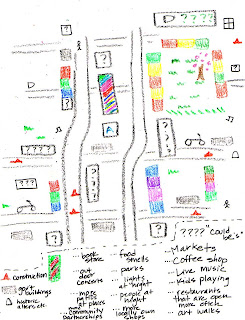 D ????
?
?
?
?
???
?
A
?
????
????
???
????
"could be's"
construction
gov't buildings
historic
book store
out door concerts
more patios at places
more community partnerships
food smells
parks
lights at night
people at night
more locally own shops
... Markets
... Coffee shop
... Live music
... Kids playing
... restaurants that are open more often
... art walks